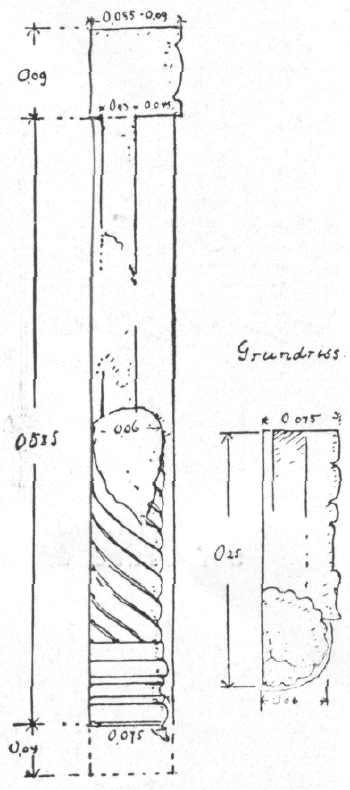 0,085-0,09
0,09
0,06
0,585
0,075
0,04
Grundriss.
0,075
0,25
0,06